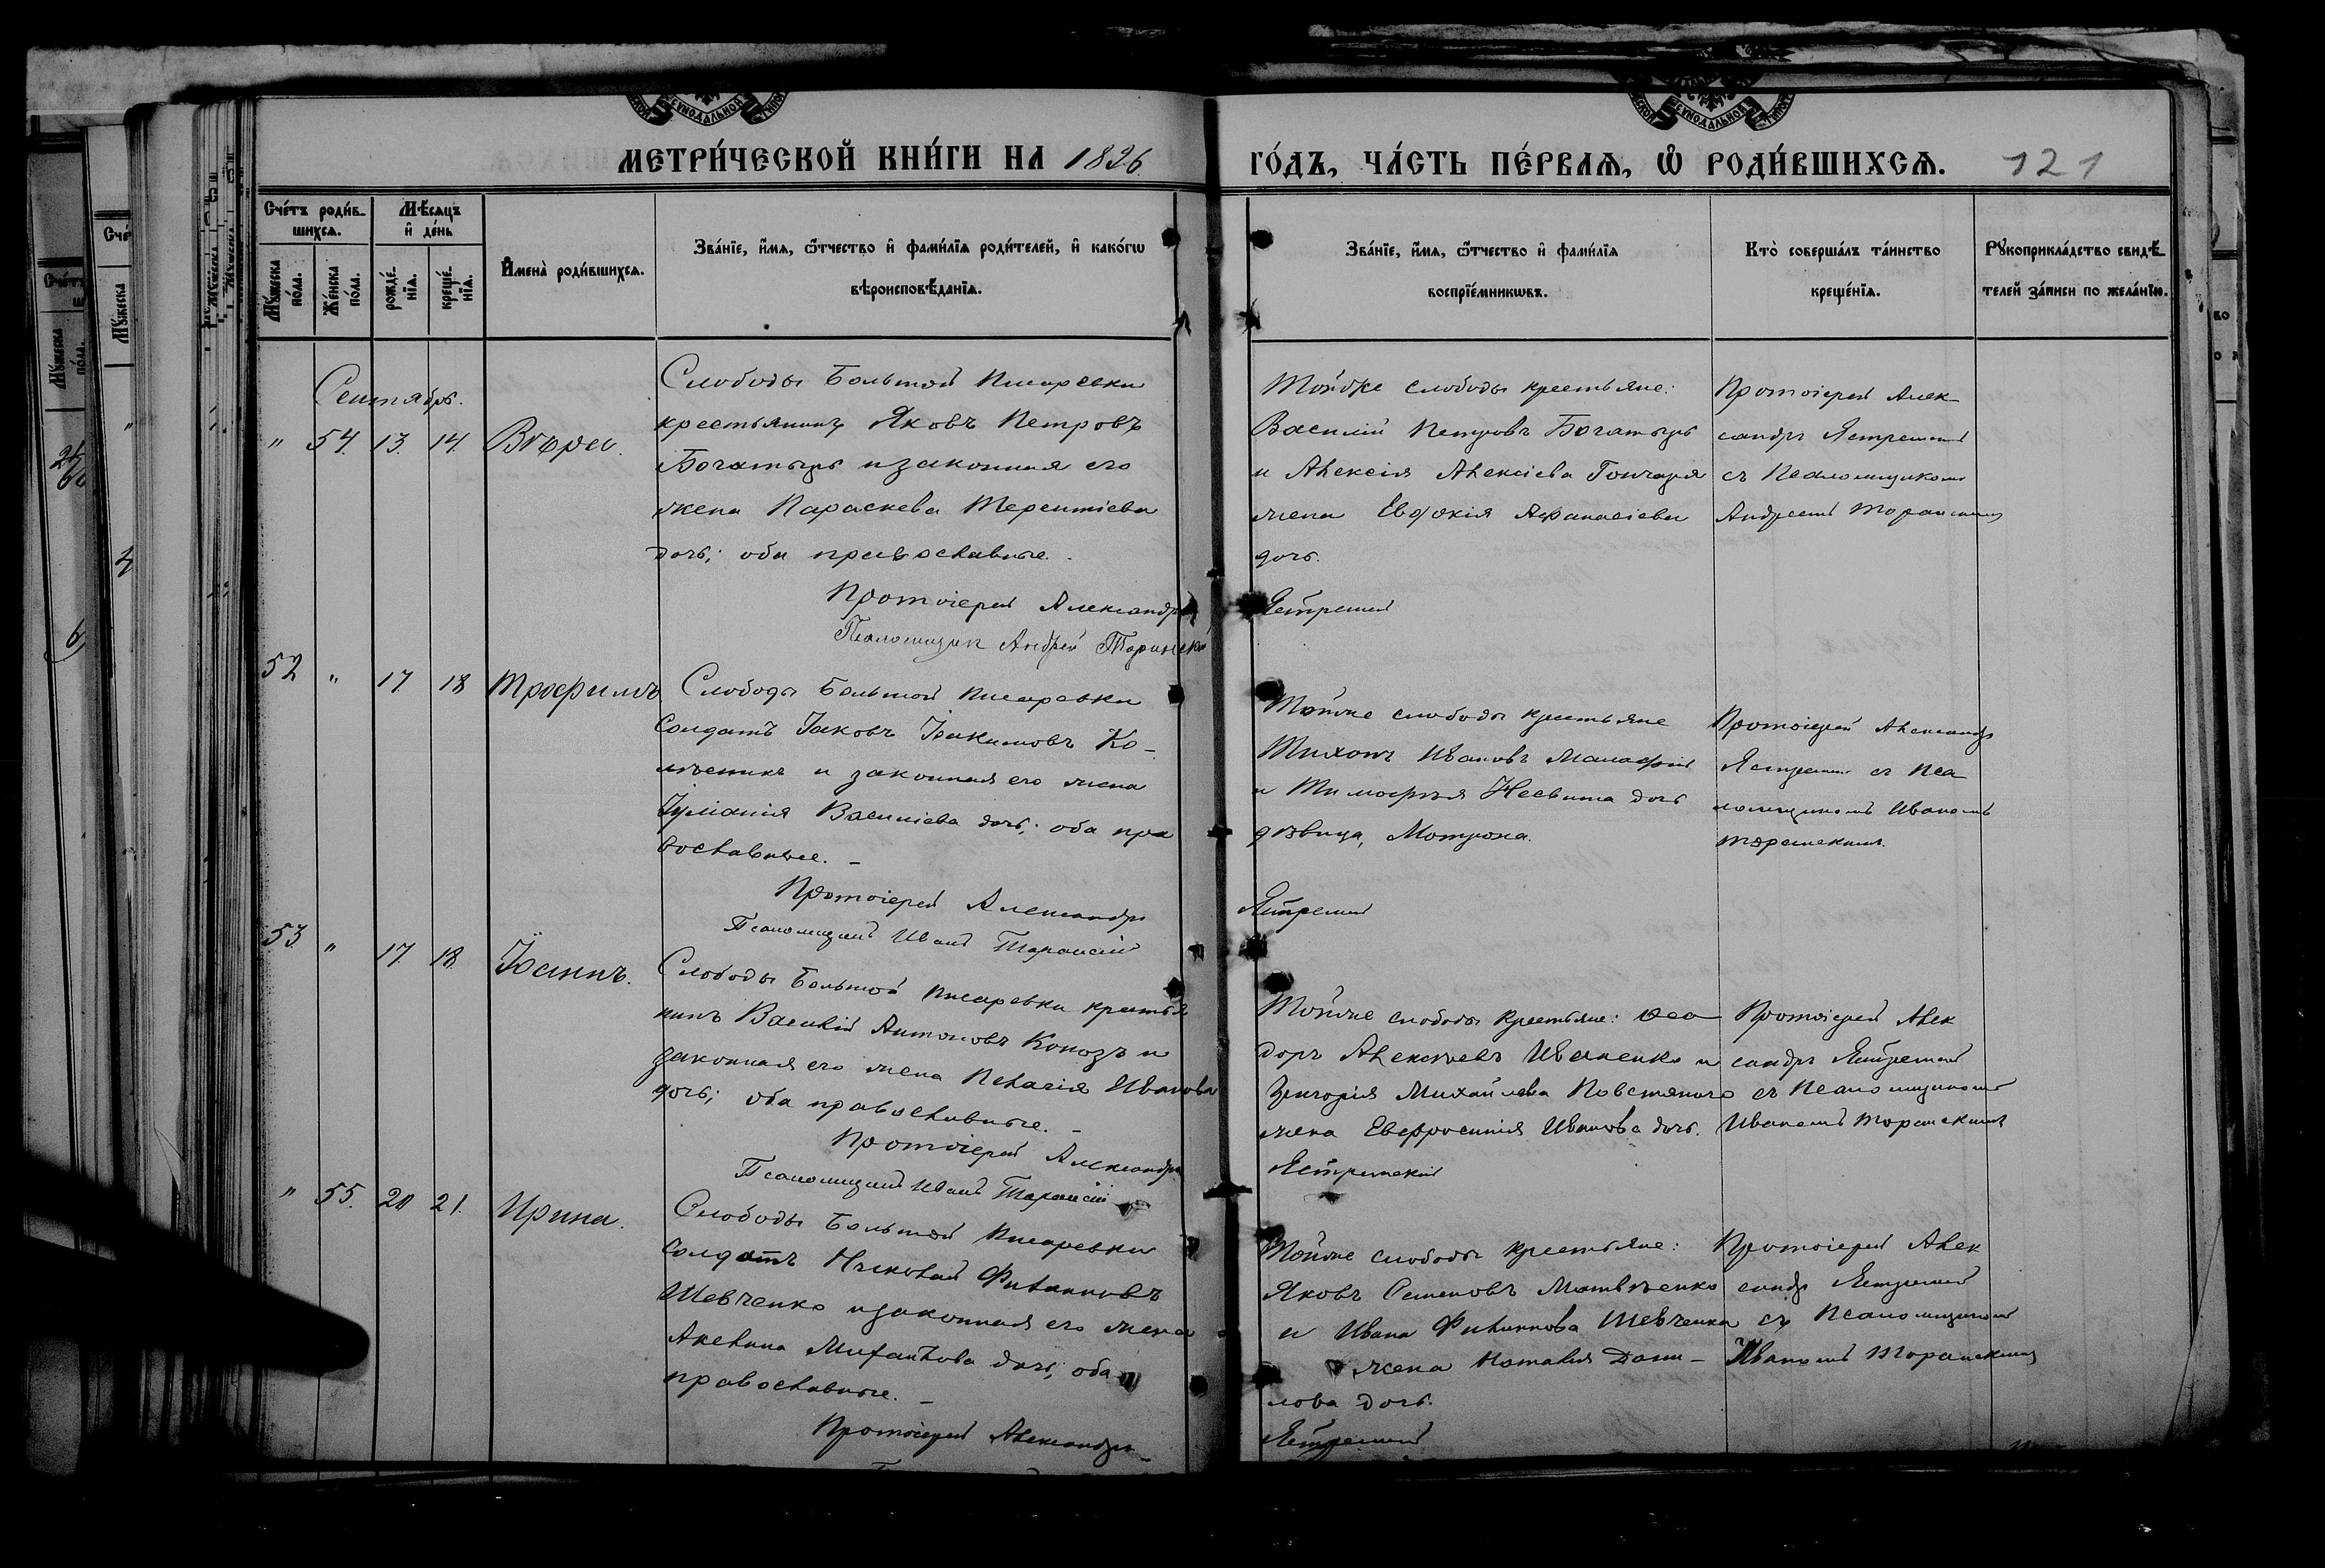 МЕТРИ́ЧЕСКОЙ КНИ́ГИ НА 1896
ГО́ДЪ, ЧА́СТЬ ПЕ́РВАѦ, Ѡ РОДИ́ВШИХСѦ. 121
Сче́тъ роди́в-
шихсѧ.
Мѣ́сѧцъ
и҆ де́нь
Мꙋ́жеска
по́ла.
Же́нска
по́ла.
рожде́-
нїѧ.
креще́-
нїѧ.
И҆мена̀ роди́вшихсѧ.
Зва́нїе, и҆́мѧ, ѻ҆́тчество и҆ фами́лїѧ роди́телей, и҆ како́гѡ
вѣроисповѣ́данїѧ.
Зва́нїе, и҆́мѧ, ѻ҆́тчество и҆ фами́лїѧ
воспрїе́мникѡвъ.
Кто̀ соверша́лъ та́инство
креще́нїѧ.
Рꙋкоприкла́дство свидѣ́-
телей за́писи по жела́нїю.
Сентябрь.
" 54. 13. 14. Вѣра.
Слободы Большой Писаревки
крестьянинъ Яковъ Петровъ
Богатырь и законная его
жена Параскева Терентіева
дочь; оба православные.
Протоіерей Александръ
Псаломщикъ Андрей
Тойже слободы крестьяне:
Василій Петровъ Богатырь
и Алексія Алексіева Гончара
жена Евдокія Афанасіева
дочь.
Протоіерей Алек-
сандръ
съ Псаломщикомъ
Андреемъ
52 " 17. 18 Трофимъ
Слободы Большой Писаревки
солдатъ Іаковъ Іоакимовъ Ко-
лѣсникъ и законная его жена
Іуліанія Василіева дочь; оба пра
вославные. –
Протоіерей Александръ
Псаломщикъ Иванъ
Тойже слободы крестьяне
Тихонъ Ивановъ
и Тимофѣя дочь
дѣвица, Матрона.
Протоіерей Александръ
съ Пса
ломщикомъ Иваномъ
53 " 17. 18. Іоаннъ.
Слободы Большой Писаревки крестья
нинъ Василій Антоновъ Конозъ и
законная его жена Пелагія Иванова
дочь; оба православные. –
Протоіерей Александръ
Псаломщикъ Иванъ
Тойже слободы крестьяне: Ѳео
доръ Алексѣевъ Иваненко и
Григорія Михайлова Повстяного
жена Евфросинія Иванова дочь.
Протоіерей Алек
сандръ
съ Псаломщикомъ
Иваномъ
" 55. 20 21. Ирина.
Слободы Большой Писаревки
солдатъ Николай Филипповъ
Шевченко и законная его жена
Акелина Михайлова дочь; оба
православные. –
Протоіерей Александръ
Тойже слободы крестьяне:
Яковъ Семеновъ Матвѣенко
и Ивана Филиппова Шевченка
жена Наталія Дани-
лова дочь.
Протоіерей Алек
сандръ
съ Псаломщикомъ
Иваномъ